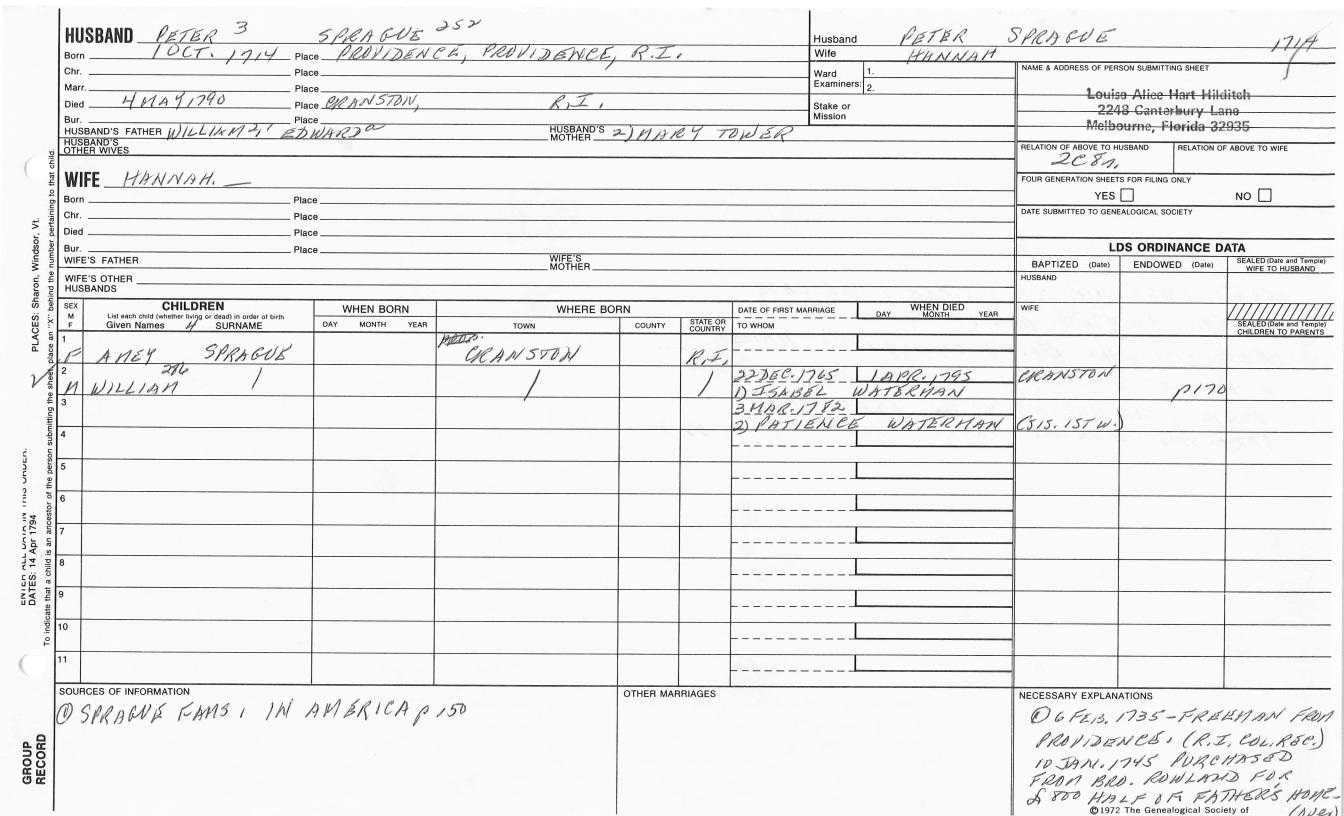 HUSBAND PETER 3 SPRAGUE 252
Born 1 OCT. 1714 Place PROVIDENCE, PROVIDENCE, R.I.
Chr. Place
Marr. Place
Died 4 MAY, 1790 Place CRANSTON, R.I.
Bur. Place
HUSBAND'S FATHER WILLIAM 2, EDWARD HUSBAND'S MOTHER 2) MARY TOWER
HUSBAND'S OTHER WIVES
Husband PETER SPRAGUE 1714
Wife HANNAH
Ward Examiners: 1.
2.
Stake or Mission
NAME & ADDRESS OF PERSON SUBMITTING SHEET
Louise Alice Hart Hilditch
2248 Canterbury Lane
Melbourne, Florida 32935
RELATION OF ABOVE TO HUSBAND RELATION OF ABOVE TO WIFE
2C8r.
FOUR GENERATION SHEETS FOR FILING ONLY
YES NO
DATE SUBMITTED TO GENEALOGICAL SOCIETY
WIFE HANNAH. —
Born Place
Chr. Place
Died Place
Bur. Place
WIFE'S FATHER WIFE'S MOTHER
WIFE'S OTHER HUSBANDS
LDS ORDINANCE DATA
BAPTIZED (Date) ENDOWED (Date) SEALED (Date and Temple) WIFE TO HUSBAND
HUSBAND
WIFE
SEALED (Date and Temple) CHILDREN TO PARENTS
SEX M F
CHILDREN
List each child (whether living or dead) in order of birth
Given Names 4 SURNAME
WHEN BORN
DAY MONTH YEAR
WHERE BORN
TOWN COUNTY STATE OR COUNTRY
DATE OF FIRST MARRIAGE
TO WHOM
WHEN DIED
DAY MONTH YEAR
1
F AMEY SPRAGUE CRANSTON R.I.
2 22 DEC. 1765 1 APR. 1795 CRANSTON
M WILLIAM 1) ISABEL WATERMAN p170
3 3 MAR. 1782
2) PATIENCE WATERMAN (SIS. 1ST W.)
4
5
6
7
8
9
10
11
SOURCES OF INFORMATION
① SPRAGUE FAMS. IN AMERICA p 150
OTHER MARRIAGES
NECESSARY EXPLANATIONS
① 6 FEB. 1735 - FREEMAN FROM
PROVIDENCE. (R.I. COL. REC.)
10 JAN. 1745 PURCHASED
FROM BRO. ROWLAND FOR
£800 HALF OF FATHER'S HOME-
(OVER)
©1972 The Genealogical Society of
PLACES: Sharon, Windsor, Vt.
To indicate that a child is an ancestor of the person submitting the sheet, place an "X" behind the number pertaining to that child.
ENTER ALL DATA IN THIS ORDER:
DATES: 14 Apr 1794
GROUP RECORD